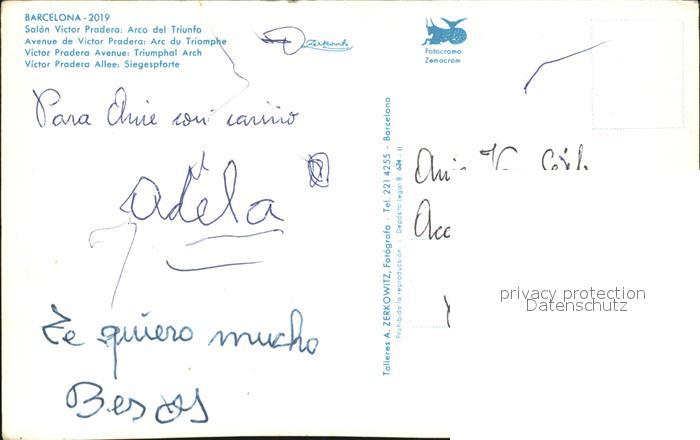 BARCELONA - 2019
Salón Víctor Pradera: Arco del Triunfo
Avenue de Víctor Pradera: Arc du Triomphe
Víctor Pradera Avenue: Triumphal Arch
Víctor Pradera Allee: Siegespforte
Zerkowitz
Fotocromo
Zemacrom
Para con cariño
Adela
Te quiero mucho
Besos
Talleres A. ZERKOWITZ, Fotógrafo - Tel. 221 4255 - Barcelona
Prohibida la reproducción - Depósito Legal B. 624 - II
privacy protection
Datenschutz